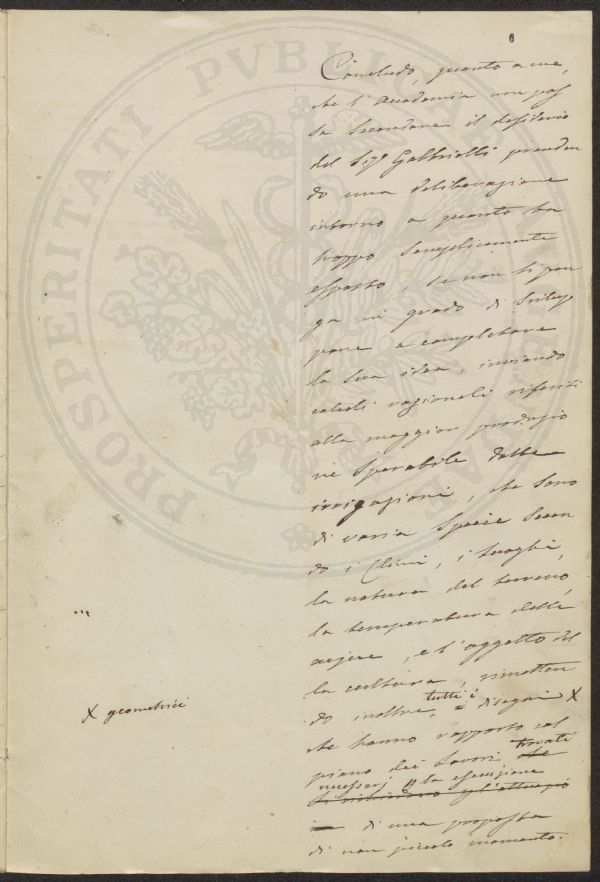 6
Concludo, quanto a me,
che l'accademia non pos
sa secondare il desiderio
del Sigr Gabbrielli prenden
do una deliberazione
intorno a quanto ha
troppo semplicemente
esposto, se non si pon
ga in grado di svilup
pare e completare
la sua idea, inviando
calcoli ragionati riferiti
alla maggior produzio
ne sperabile dalle
irrigazioni, che sono
di varia specie secon
do i Climi, i luoghi,
la natura del terreno,
la temperatura delle
acque, e l'oggetto del
la cultura, rimetten
do inoltre tutti i disegni X
X geometrici
che hanno rapporto col
piano dei lavori trovati
necessarj p la esecuzione
di una proposta
di non piccolo momento.
PROSPERITATI PVBLICAE